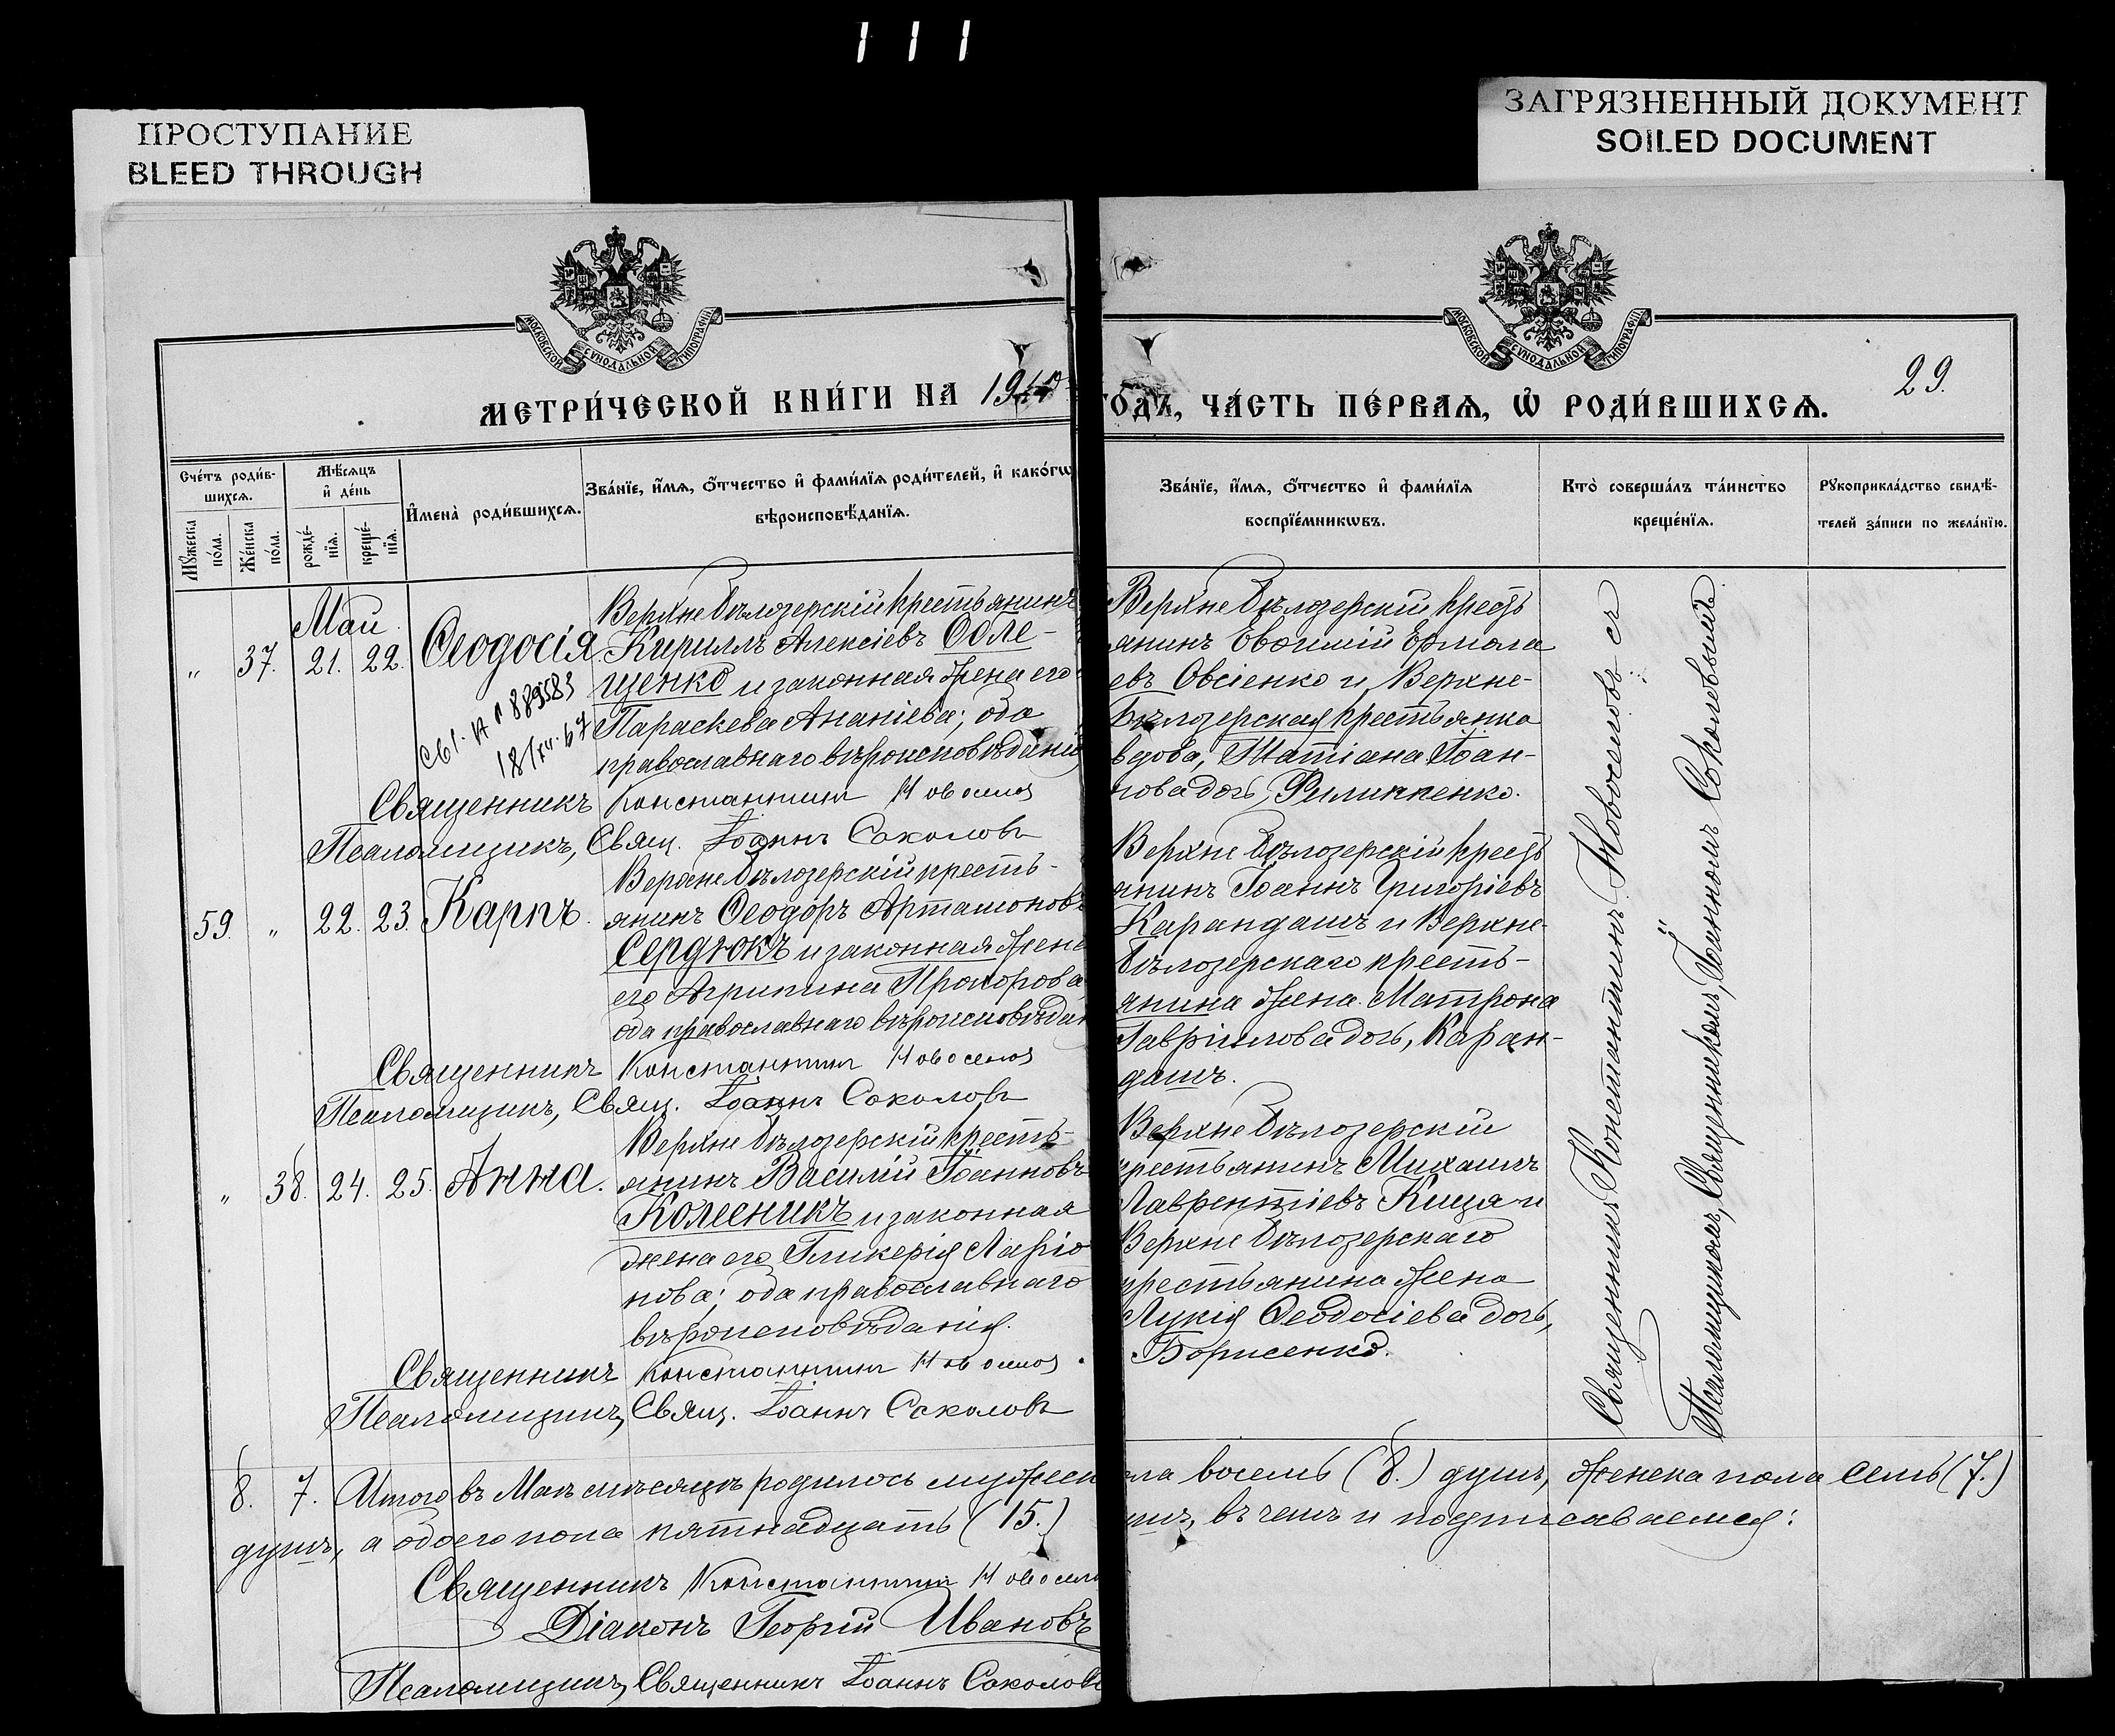 111
ПРОСТУПАНИЕ
BLEED THROUGH
ЗАГРЯЗНЕННЫЙ ДОКУМЕНТ
SOILED DOCUMENT
МОСКОВСКОЙ СѴНОДАЛЬНОЙ ТИПОГРАФІИ
МОСКОВСКОЙ СѴНОДАЛЬНОЙ ТИПОГРАФІИ
МЕТРИ́ЧЕСКОЙ КНИ́ГИ НА
ГОДЪ, ЧА́СТЬ ПЕ́РВАѦ, Ѡ РОДИ́ВШИХСѦ.
29.
Сче́тъ роди́в-
шихсѧ.
Мꙋ́жеска
по́ла.
Же́нска
по́ла.
Мѣ́сѧцъ
и҆ де́нь
рожде́-
нїѧ.
креще́-
нїѧ.
И҆мена̀ роди́вшихсѧ.
Зва́нїе, и҆́мѧ, ѻ҆́тчество и҆ фами́лїѧ роди́телей, и҆ како́гѡ
вѣроисповѣ́данїѧ.
Зва́нїе, и҆́мѧ, ѻ҆́тчество и҆ фами́лїѧ
воспрїе́мникѡвъ.
Кто̀ соверша́лъ та́инство
креще́нїѧ.
Рꙋкоприкла́дство свидѣ́-
телей за́писи по жела́нїю.
Май
„ 37. 21. 22. Ѳеодосія.
Верхнебѣлозерскій крестьянинъ
Кириллъ Алексіевъ Обле-
щенко и законная жена его
Параскева Ананіева; оба
православнаго вѣроисповѣданія
Священникъ Константинъ Новоселов
Псаломщикъ, Свящ. Іоаннъ Соколовъ
Верхнебѣлозерскій крестъ
янинъ Евѳимій Ермола
евъ Овсіенко и Верхне-
Бѣлозерская крестьянка
вдова, Татіана Іоан-
нова дочь, Филиппенко.
59. „ 22. 23. Карпъ.
Верхнебѣлозерскій кресть-
янинъ Ѳеодоръ Артамоновъ
Сердюкъ и законная жена
его Агрипина Прохорова
оба православнаго вѣроисповѣдан
Священникъ Константинъ Новоселов
Псаломщикъ, Свящ. Іоаннъ Соколовъ
Верхнебѣлозерскій крестъ
янинъ Іоаннъ Григоріевъ
Карандашъ и Верхне-
бѣлозерскаго кресть-
янина жена Матрона
Гавріилова дочь, Каран-
дашъ.
„ 38. 24. 25. Анна.
Верхнебѣлозерскій кресть-
янинъ Василій Іоанновъ
Колесникъ и законная
жена его Гликерія Ларіо
нова; оба православнаго
вѣроисповѣданія.
Священникъ Константинъ Новоселов
Псаломщикъ, Свящ. Іоаннъ Соколовъ
Верхнебѣлозерскій
крестьянинъ Михаилъ
Лаврентіевъ Кища и
Верхнебѣлозерскаго
крестьянина жена
Лукія Ѳеодосіева дочь,
Борисенко.
Священникъ Константинъ Новоселовъ съ
Псаломщикомъ, Священникомъ, Іоанномъ Соколовымъ.
8. 7. Итого въ Маѣ мѣсяцѣ родилось мужеск
ола восемь (8.) душъ, женска пола семь (7.)
душъ, а обоего пола пятнадцать (15.)
шъ, въ чемъ и подписываемся:
Священникъ Константинъ Новосел
Діаконъ Георгій Ивановъ
Псаломщикъ, Священникъ Іоаннъ Соколовъ